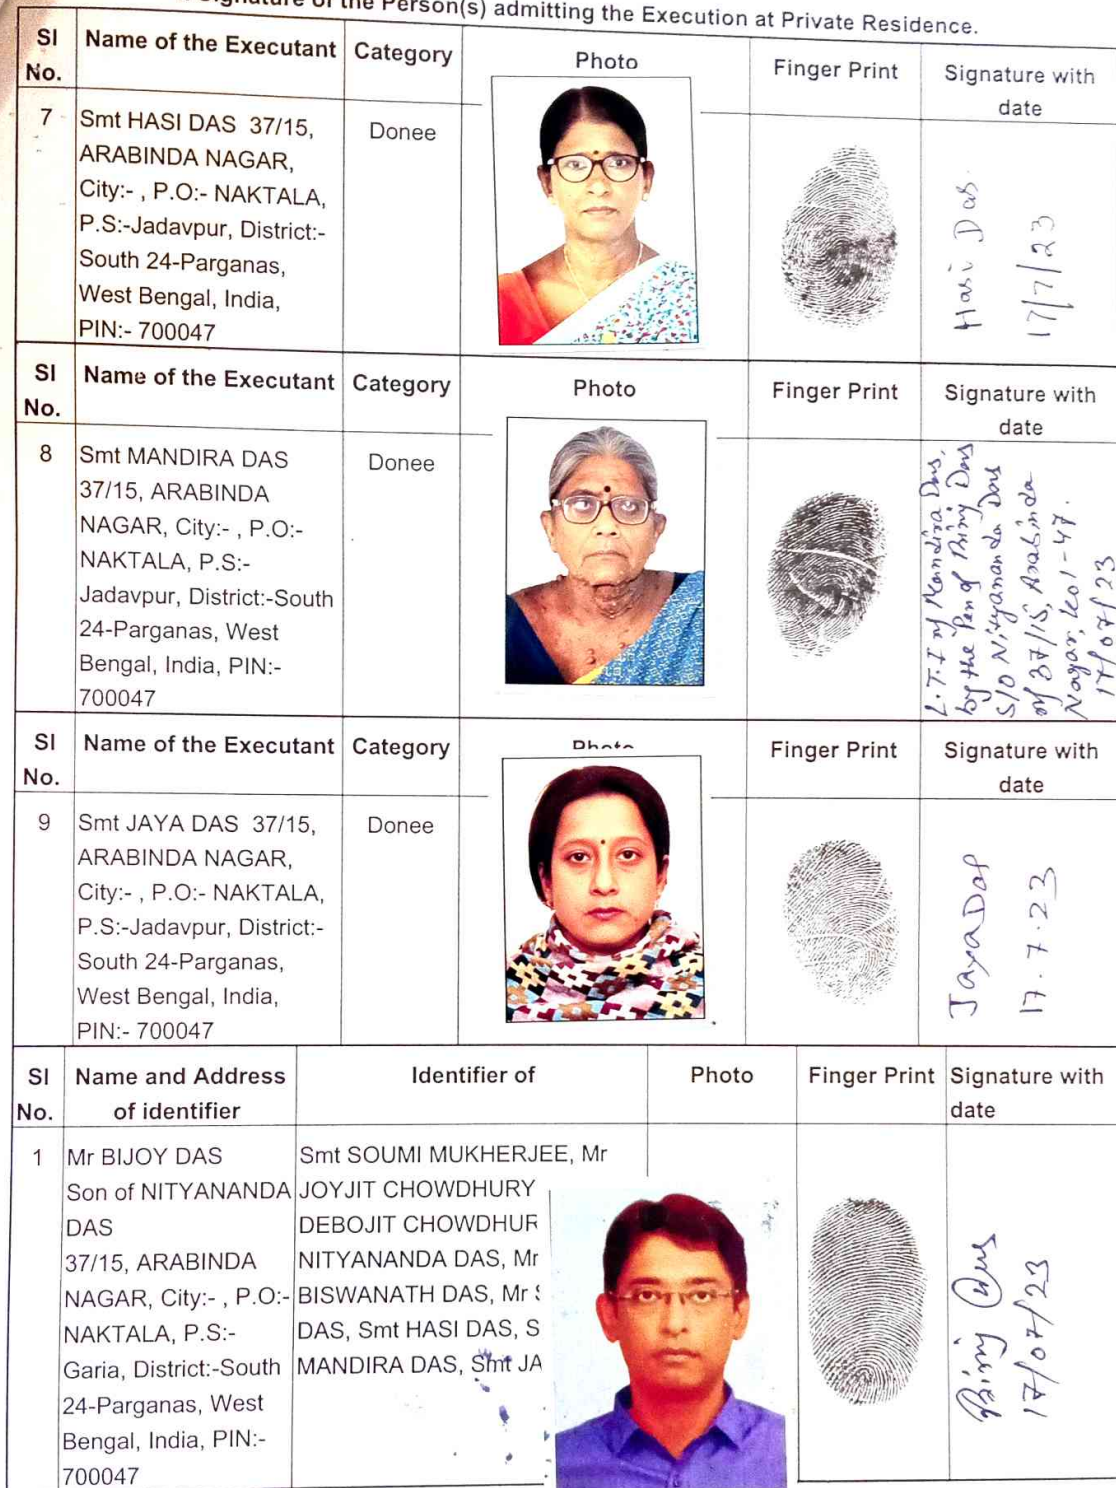 Signature of the Person(s) admitting the Execution at Private Residence.
SI No.
Name of the Executant
Category
Photo
Finger Print
Signature with date
7
Smt HASI DAS 37/15,
ARABINDA NAGAR,
City:- , P.O:- NAKTALA,
P.S:-Jadavpur, District:-
South 24-Parganas,
West Bengal, India,
PIN:- 700047
Donee
Hasi Das.
17/7/23
SI No.
Name of the Executant
Category
Photo
Finger Print
Signature with date
8
Smt MANDIRA DAS
37/15, ARABINDA
NAGAR, City:- , P.O:-
NAKTALA, P.S:-
Jadavpur, District:-South
24-Parganas, West
Bengal, India, PIN:-
700047
Donee
L.T.I of Mandira Das,
by the Pen of Das
S/O Nityananda Das
of 37/15, Arabinda
Nagar, Kol-47.
17/07/23
SI No.
Name of the Executant
Category
Photo
Finger Print
Signature with date
9
Smt JAYA DAS 37/15,
ARABINDA NAGAR,
City:- , P.O:- NAKTALA,
P.S:-Jadavpur, District:-
South 24-Parganas,
West Bengal, India,
PIN:- 700047
Donee
Jaya Das
17.7.23
SI No.
Name and Address of identifier
Identifier of
Photo
Finger Print
Signature with date
1
Mr BIJOY DAS
Son of NITYANANDA
DAS
37/15, ARABINDA
NAGAR, City:- , P.O:-
NAKTALA, P.S:-
Garia, District:-South
24-Parganas, West
Bengal, India, PIN:-
700047
Smt SOUMI MUKHERJEE, Mr
JOYJIT CHOWDHURY
DEBOJIT CHOWDHUR
NITYANANDA DAS, Mr
BISWANATH DAS, Mr S
DAS, Smt HASI DAS, S
MANDIRA DAS, Smt JA
Das
17/07/23